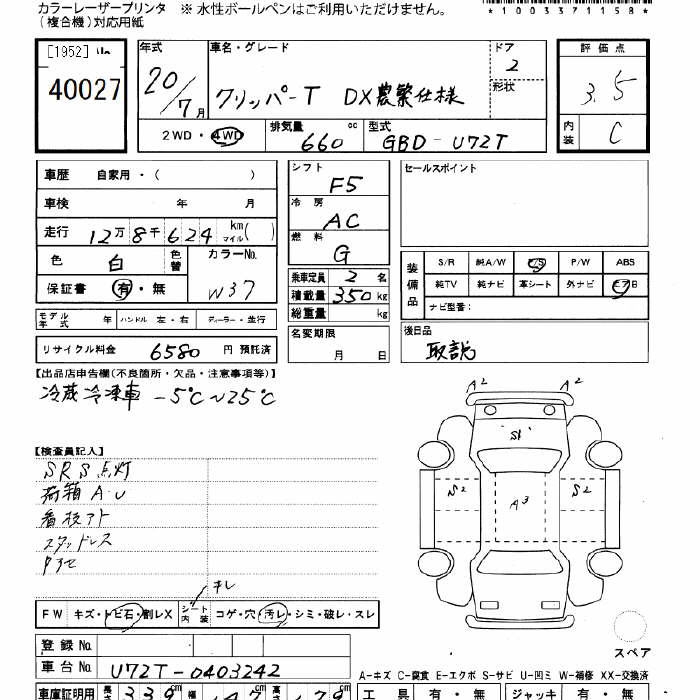 カラーレーザープリンタ ※ 水性ボールペンはご利用いただけません。
(複合機)対応用紙
*1003371158*
[1952]
40027
年式 車名・グレード ドア 評価点
20/7月 クリッパーT DX農繁仕様 2 3.5
形状
2WD・4WD 排気量 660 cc 型式 GBD-U72T 内装 C
車歴 自家用・( )
車検 年 月
走行 12万8千624 km マイル( )
色 白 色替 カラーNo. W37
保証書 有・無
モデル年式 年 ハンドル 左・右 ディーラー・並行
リサイクル料金 6580 円 預託済
シフト F5
冷房 AC
燃料 G
乗車定員 2 名
積載量 350 kg
総重量 kg
名変期限
月 日
セールスポイント
装備品 S/R 純A/W P/S P/W ABS
純TV 純ナビ 革シート 外ナビ エアB
ナビ型番:
後日品
取説
【出品店申告欄(不良箇所・欠品・注意事項等)】
冷蔵冷凍車 -5℃~25℃
【検査員記入】
SRS点灯
荷箱A.U
看板アト
スタッドレス
キレ
A2 A2
S1
S2 A3 S2
FW キズ・トビ石・割レX シート内装 コゲ・穴・汚レ・シミ・破レ・スレ
スペア
登録No.
車台No. U72T-0403242
A-キズ C-腐食 E-エクボ S-サビ U-凹ミ W-補修 XX-交換済
車庫証明用 長さ 339 cm 幅 147 cm 高さ 179 cm 工具 有・無 ジャッキ 有・無